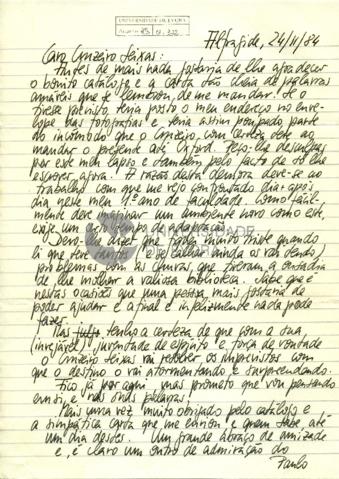 UNIVERSIDADE DE ÉVORA
Alfragide, 24/11/84
Caro Cruzeiro Seixas:
Antes de mais nada, gostaria de lhe agradecer
o bonito catálogo e a carta tão cheia de palavras
amáveis que se lembrou de me mandar. Se o
tivesse previsto, teria posto o meu endereço no enve-
lope das fotografias e teria assim poupado parte
do incómodo que o Cruzeiro, com certeza teve ao
mandar o presente até Oxford. Peço-lhe desculpas
por este meu lapso e também pelo facto de só lhe
escrever agora. A razão desta demora deve-se ao
trabalho com que me vejo confrontado dia após
dia neste meu 1º ano de faculdade. Como facil-
mente deve imaginar um ambiente novo como este,
exige um certo tempo de adaptação.
Devo-lhe dizer que fiquei muito triste quando
li que teve tantos (e se calhar ainda os vai tendo)
problemas com as chuvas, que tiveram a ousadia
de lhe molhar a valiosa biblioteca. Sabe que é
nestas ocasiões que uma pessoa mais gostaria de
poder ajudar e afinal e infelizmente nada pode
fazer.
Mas tenho a certeza de que com a sua,
(invejável), juventude de espírito e força de vontade
o Cruzeiro Seixas vai resolver, os imprevistos com
que o destino o vai atormentando e surpreendendo.
Fico já por aqui, mas prometo que vou pensando
em si, e nas suas palavras!
Mais uma vez, muito obrigado pelo catálogo e
a simpática carta que me enviou, e quem sabe, até
um dia destes. Um grande abraço de amizade
e, é claro um outro de admiração do
Paulo